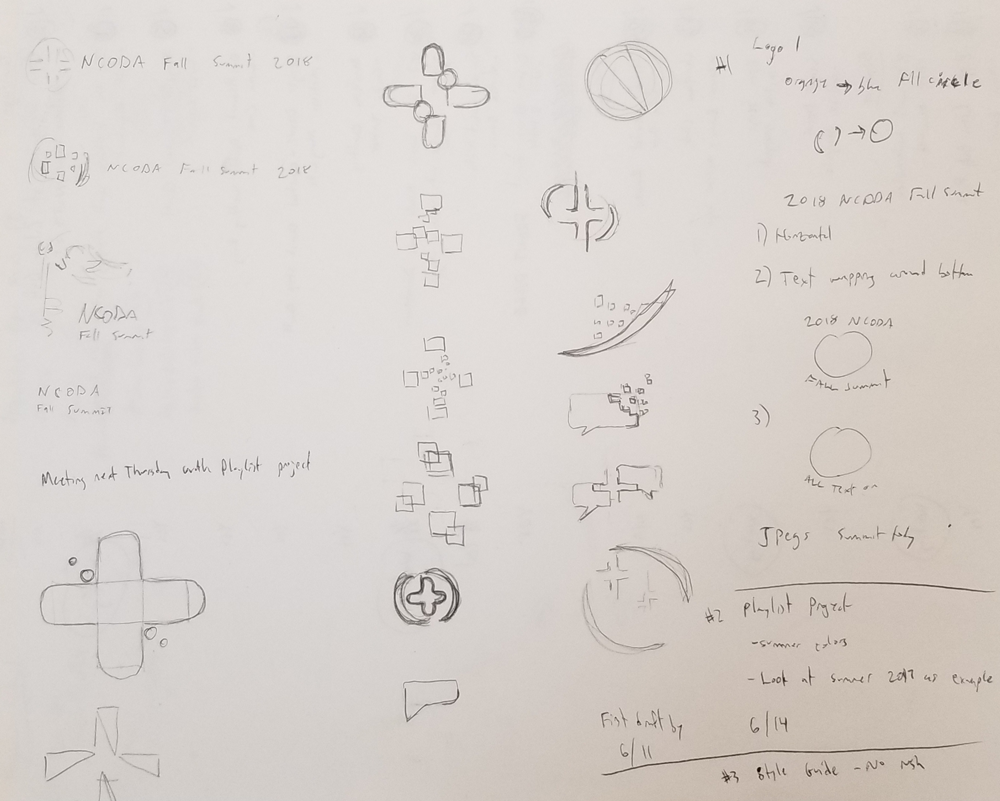 NCODA Fall Summit 2018
NCODA Fall Summit 2018
NCODA
Fall Summit
NCODA
Fall Summit
Meeting next Thursday with Playlist project
#1 Logo 1
orange → blue full circle
2018 NCODA Fall Summit
1) Horizontal
2) Text wrapping around bottom
2018 NCODA
FALL Summit
3)
ALL Text on
Jpegs Summit
#2 Playlist Project
- summer colors
- Look at summer 2017 as example
First draft by
6/11
6/14
#3 Style Guide - No rush